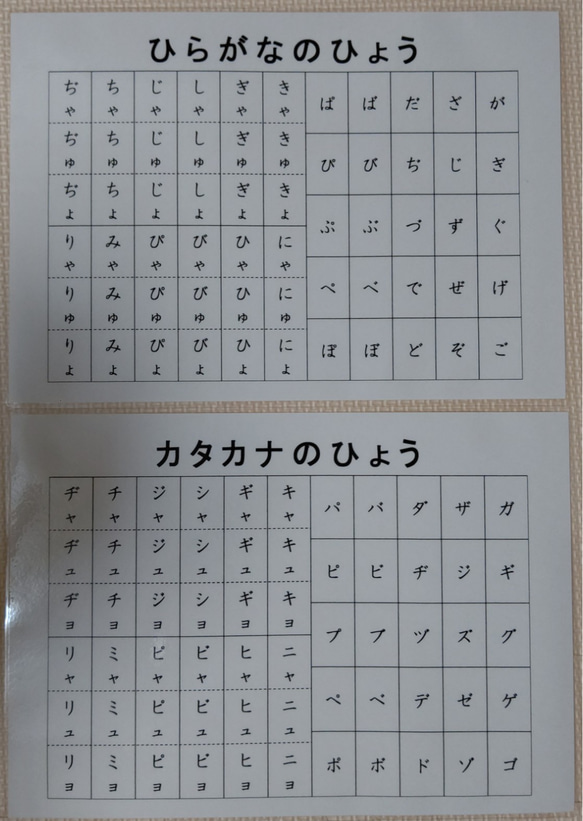 ひらがなのひょう
がぎぐげご
ざじずぜぞ
だぢづでど
ばびぶべぼ
ぱぴぷぺぽ
きゃきゅきょ
ぎゃぎゅぎょ
しゃしゅしょ
じゃじゅじょ
ちゃちゅちょ
ぢゃぢゅぢょ
にゃにゅにょ
ひゃひゅひょ
びゃびゅびょ
ぴゃぴゅぴょ
みゃみゅみょ
りゃりゅりょ
カタカナのひょう
ガギグゲゴ
ザジズゼゾ
ダヂヅデド
バビブベボ
パピプペポ
キャキュキョ
ギャギュギョ
シャシュショ
ジャジュジョ
チャチュチョ
ヂャヂュヂョ
ニャニュニョ
ヒャヒュヒョ
ビャビュビョ
ピャピュピョ
ミャミュミョ
リャリュリョ